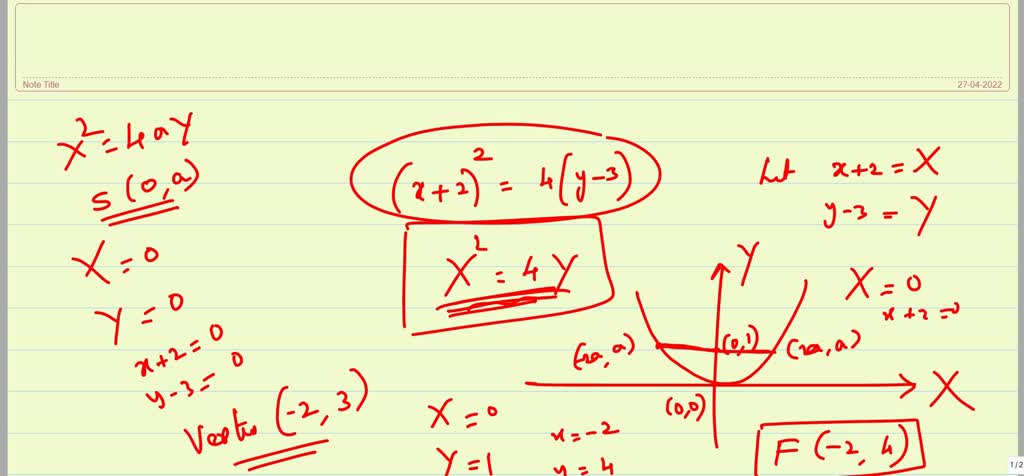 Note Title
27-04-2022
X² = 4aY
S (0, a)
X = 0
Y = 0
x+2 = 0
y-3 = 0
Vertex (-2, 3)
(x+2)² = 4(y-3)
X² = 4Y
Let x+2 = X
y-3 = Y
X = 0
x+2 = 0
Y
(-2a, a)
(0,1)
(2a, a)
(0,0)
X
X = 0
Y = 1
x = -2
y = 4
F (-2, 4)
1/2